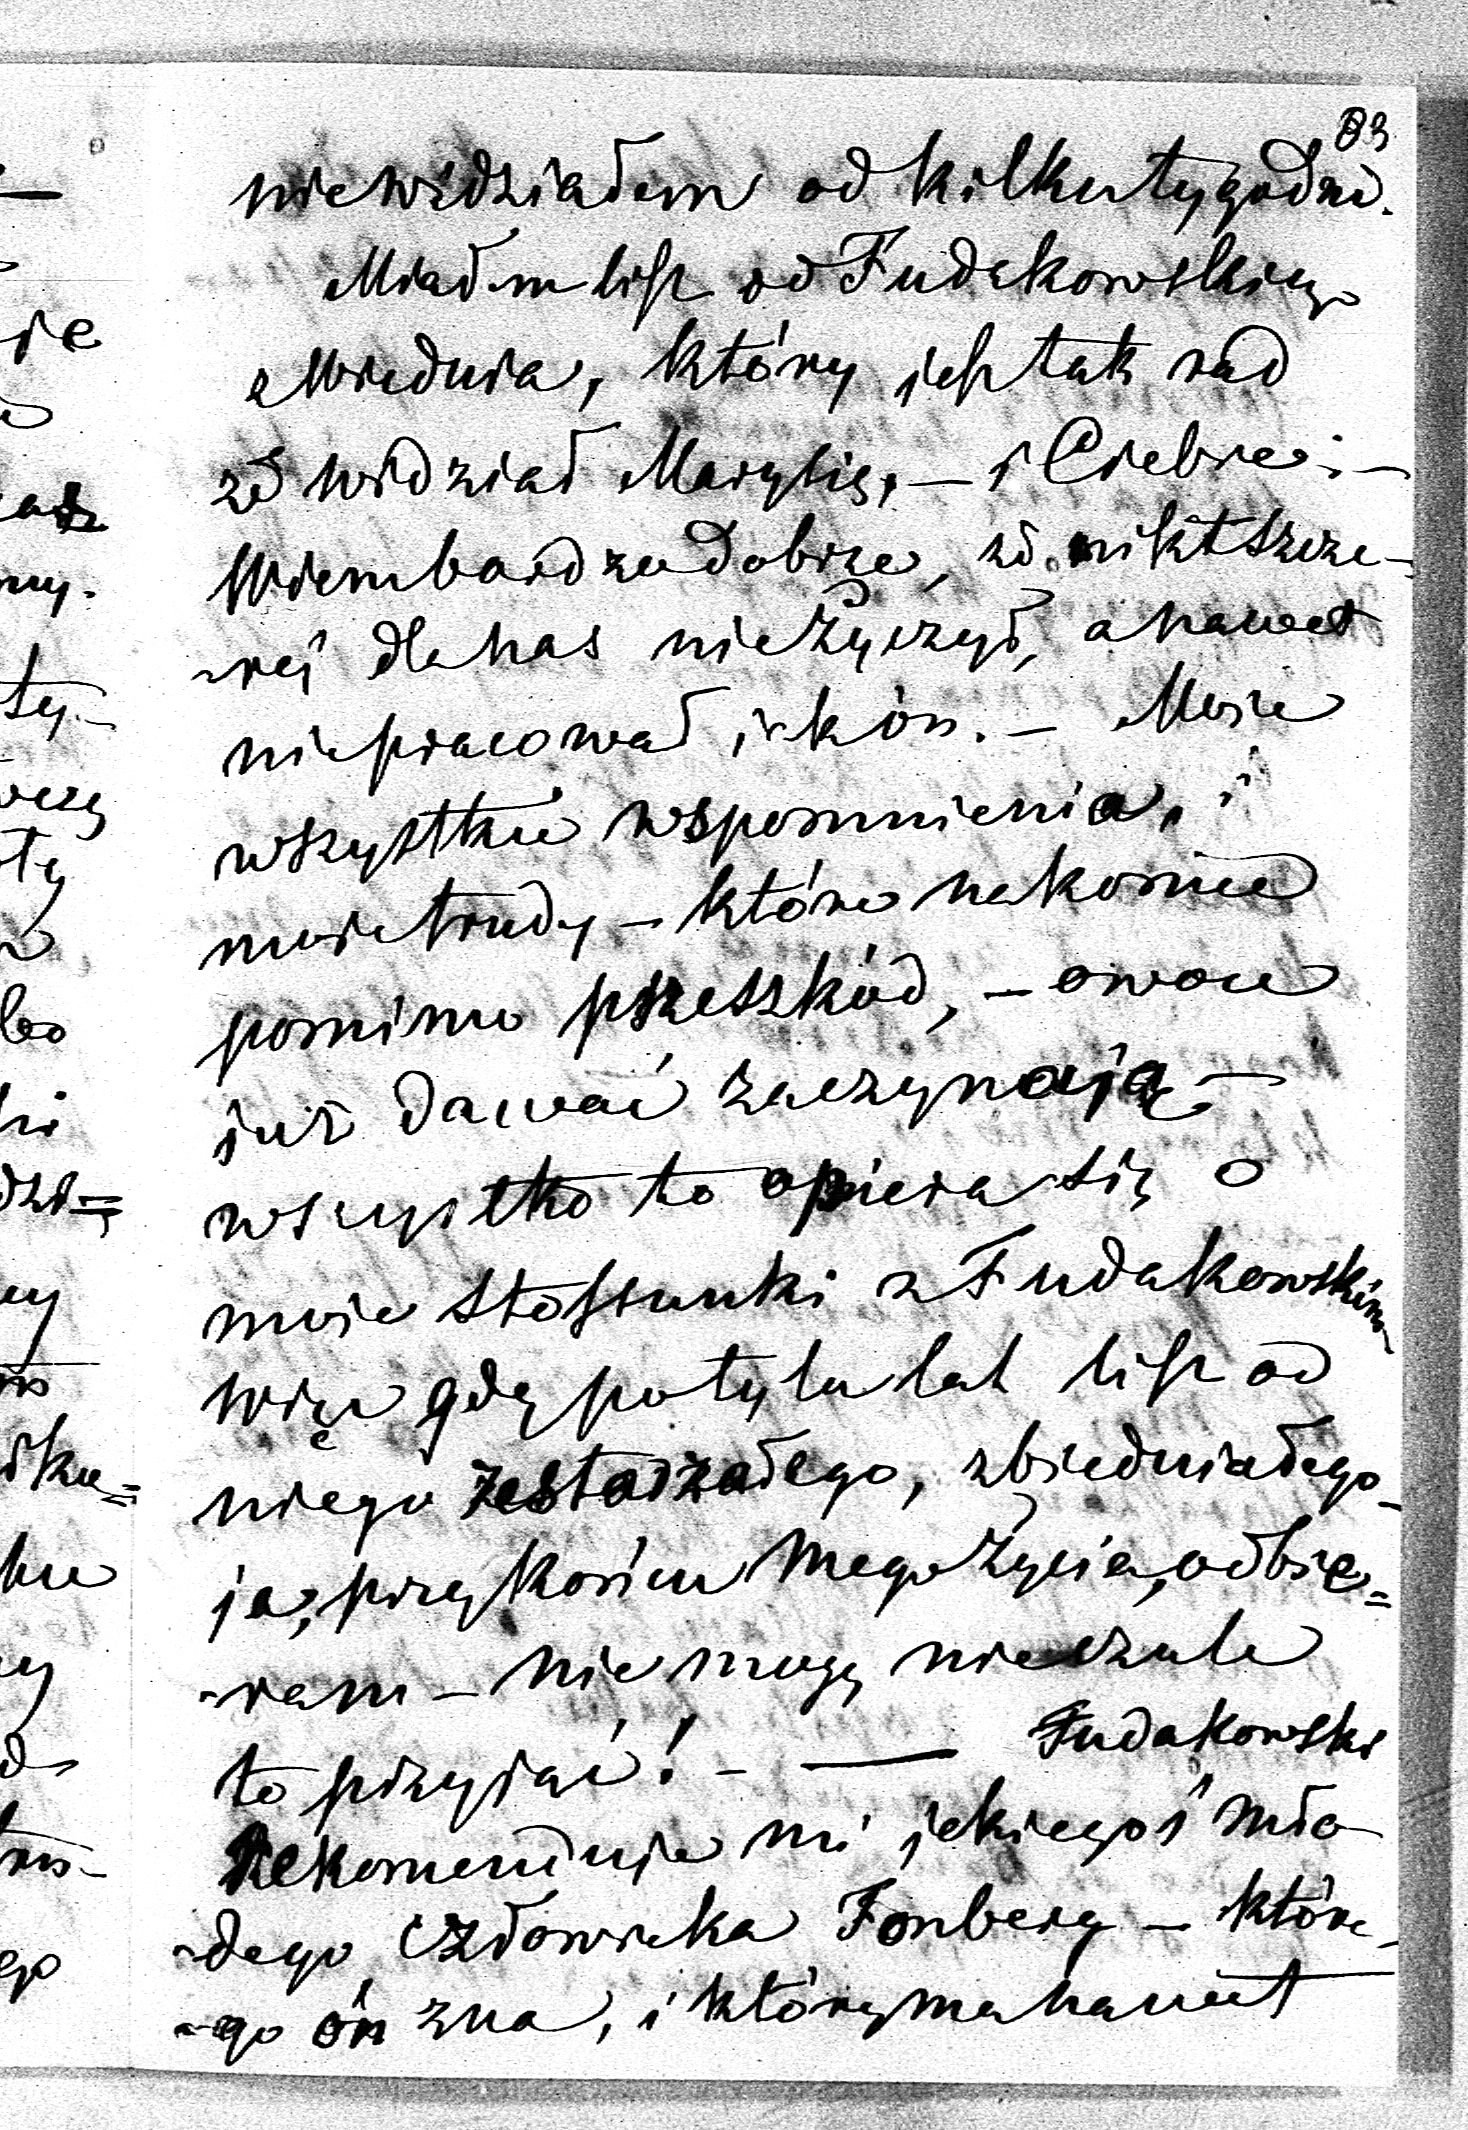 83
niewidziałem od kilku tygodni.
Miałem list od Fudakowskiego
z Wiednia, który jest tak rad
że widział Marylię, – i Ciebie; –
Wiem bardzo dobrze, że nikt szcze-
-rej dla nas nieżyczył, a nawet
niepracował jak ón. – Moje
wszystkie wspomnienia, i
moje trudy – które nakoniec
pomimo przeszkód, – owoce
już dawać zaczynają –
wszystko to opiera się o
moje stossunki z Fudakowskim
więc gdy po tylu lat list od
niego zestarzałego, zbiedniałego –
ja, przy końcu mego życia, odbie=
-ram – nie mogę nieczule
to przyjąć! – — Fudakowski
Rekomenduje mi jakiegoś mło-
-dego człowieka Fonberg – które-
-go ón zna, i który ma nawet